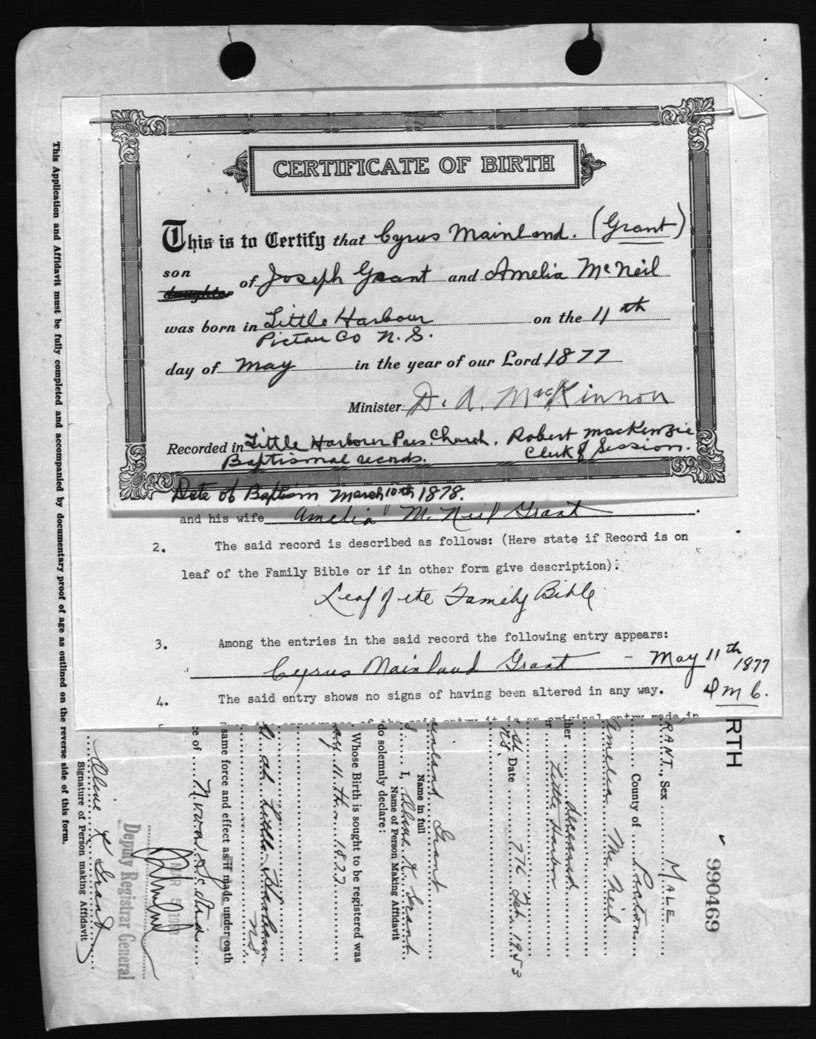 CERTIFICATE OF BIRTH
This is to Certify that Cyrus Mainland. (Grant)
son
daughter of Joseph Grant and Amelia McNeil
was born in Little Harbour on the 11th
Pictou Co N.S.
day of May in the year of our Lord 1877
Minister D. A. MacKinnon
Recorded in Little Harbour Pres. Church. Robert MacKenzie
Baptismal records. Clerk of Session.
Date of Baptism March 10th 1878.
and his wife Amelia McNeil Grant
2. The said record is described as follows: (Here state if Record is on
leaf of the Family Bible or if in other form give description):
Leaf of the Family Bible
3. Among the entries in the said record the following entry appears:
Cyrus Mainland Grant - May 11th 1877
4. The said entry shows no signs of having been altered in any way.
This Application and Affidavit must be fully completed and accompanied by documentary proof of age as outlined on the reverse side of this form.
RTH
990469
RANT, Sex MALE
County of Pictou
Amelia McNeil
deceased
Little Harbour
Date 7th Feb. 1953
Grant
Name in full
I, Grant
Name of Person Making Affidavit
do solemnly declare:
Whose Birth is sought to be registered was
11th 1877
at Little Harbour
N.S.
same force and effect as if made under oath
of Nova Scotia
Deputy Registrar General
Grant
Signature of Person making Affidavit